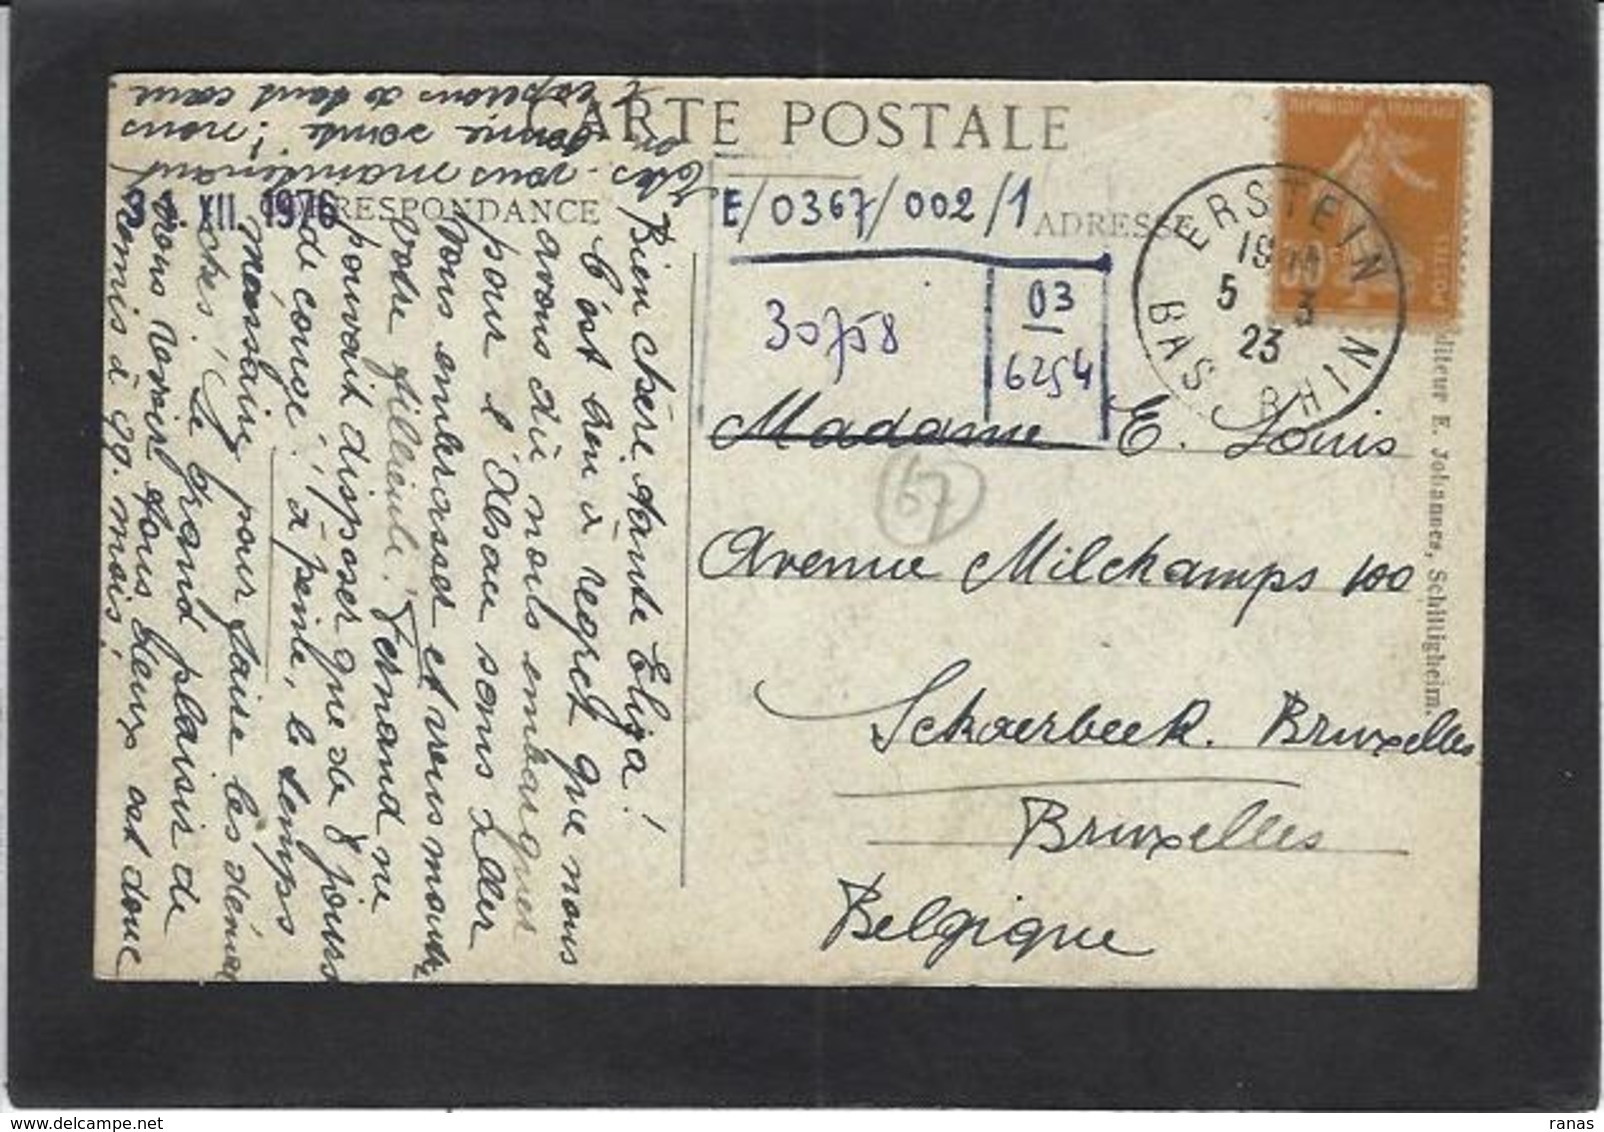 CARTE POSTALE
CORRESPONDANCE
ADRESSE
31. XII. 1976
E/0367/002/1
03
6254
30758
67
REPUBLIQUE FRANCAISE
ERSTEIN
19
5 3
23
BAS RHIN
Madame E. Louis
Avenue Milchamps 100
Schaerbeek. Bruxelles
Bruxelles
Belgique
Editeur E. Johannes, Schiltigheim.
Bien chère tante Eliza!
C'est bien à regret que nous
avons dû nous embarquer
pour l'Alsace sans aller
vous embrasser et vous montrer
votre filleule. Fernand ne
pouvait disposer que de 8 jours
de congé, à peine, le temps
nécessaire pour faire les démar
ches. Le grand plaisir de
nous revoir tous deux est donc
remis à qq. mois!
Êtes-vous maintenant
en bonne santé? nous
l'espérons de tout cœur